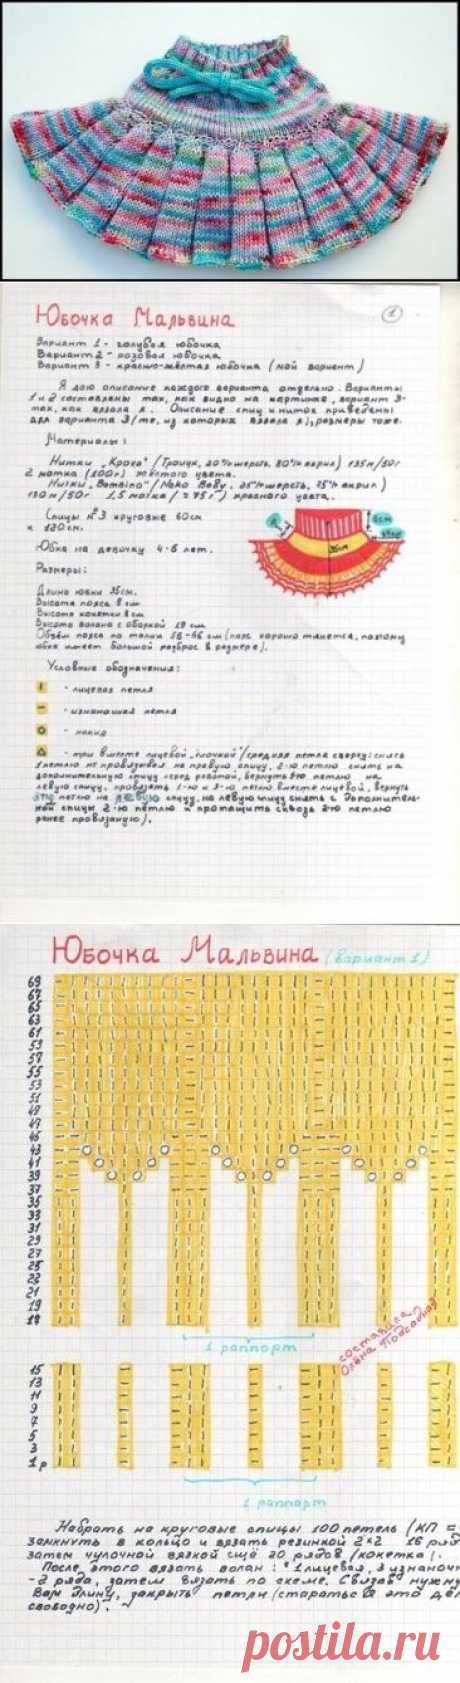 Юбочка Мальвина
1
Вариант 1 - голубая юбочка
Вариант 2 - розовая юбочка
Вариант 3 - красно-жёлтая юбочка (мой вариант)
Я даю описание каждого варианта отдельно. Варианты
1 и 2 составлены так, как видно на картинке, вариант 3-
так, как вязала я. Описание спиц и ниток приведены
для варианта 3 (те, из которых вязала я), размеры тоже.
Материалы:
Нитки „Кроха" (Троицк, 20% шерсть, 80% акрил) 135м/50г
2 мотка (100г) жёлтого цвета.
Нитки „Bambino" (Nako Baby, 25% шерсть, 75% акрил)
130м/50г 1,5 мотка (≈75г) красного цвета.
Спицы №3 круговые 60см
и 120см.
8см
35см
Юбка на девочку 4-6 лет.
Размеры:
Длина юбки 35см.
Высота пояса 8см
Высота кокетки 8см
Высота волана с оборкой 19см
Объём пояса по талии 56-66см (пояс хорошо тянется, поэтому
юбка имеет большой разброс в размере).
Условные обозначения:
- лицевая петля
- изнаночная петля
- накид
- три вместе лицевой „ёлочкой" (средняя петля сверху: снять
1 петлю не провязывая на правую спицу, 2-ю петлю снять на
дополнительную спицу перед работой, вернуть 1-ю петлю на
левую спицу, провязать 1-ю и 3-ю петлю вместе лицевой, вернуть
эту петлю на левую спицу, на левую спицу снять с дополнитель-
ной спицы 2-ю петлю и протащить сквозь 2-ю петлю
ранее провязаную).
Юбочка Мальвина (вариант 1)
69
67
65
63
61
59
57
55
53
51
49
47
45
43
41
39
37
35
33
31
29
27
25
23
21
19
18
1 раппорт
составила
Олёна
15
13
11
9
7
5
3
1р
1 раппорт
Набрать на круговые спицы 100 петель (КП =
замкнуть в кольцо и вязать резинкой 2*2 16 ряд
затем чулочной вязкой ещё 20 рядов (кокетка).
После этого вязать волан: *1 лицевая, 3 изнаноч
- 2 ряда, затем вязать по схеме. Связав нужну
Вам длину, закрыть петли (стараться это дел
свободно).
postila.ru